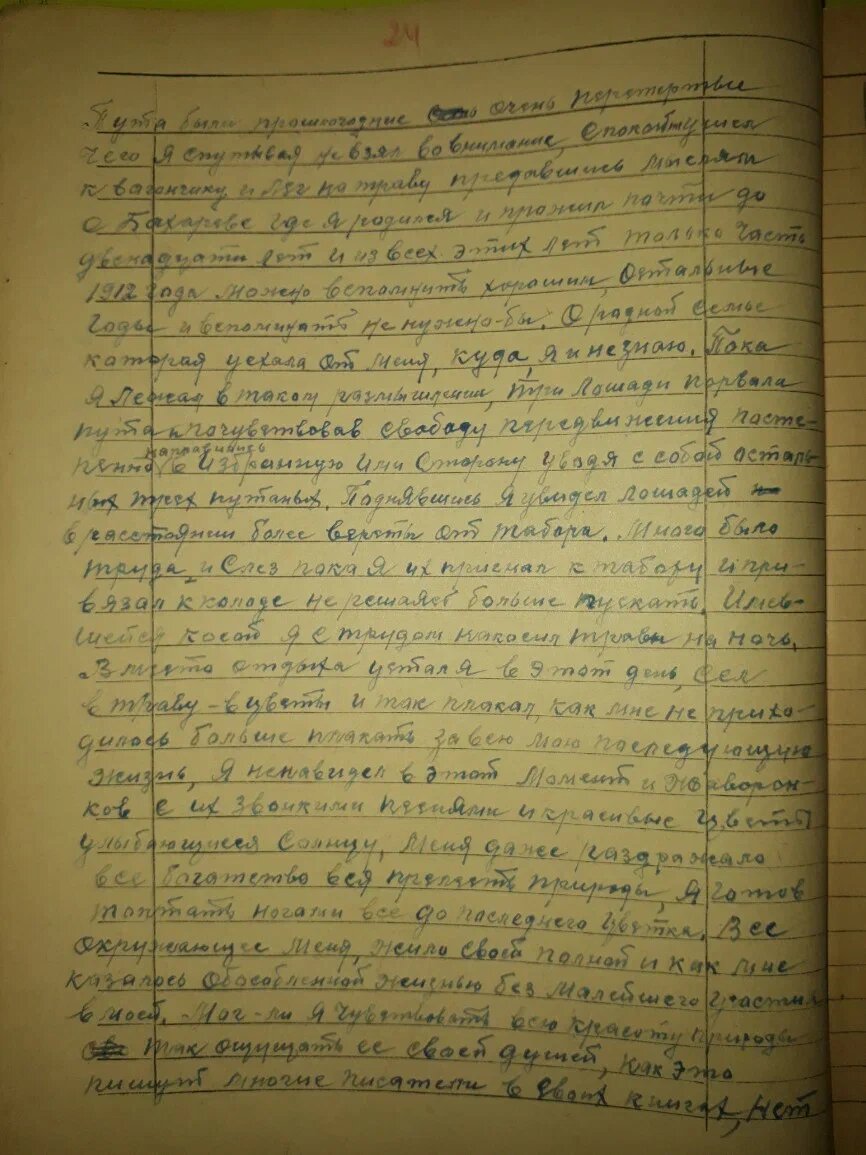 24
Пута были прошлогодние очень перетертые
чего я спутывая не взял во внимание, Спокойно ушел
к вагончику и лег на траву предавшись мыслям
о Бахареве где я родился и прожил почти до
двенадцати лет и из всех этих лет только часть
1912 года можно вспомнить хорошим, Остальные
годы и вспоминать не нужно-бы. О родной семье
каторая уехала от меня, куда, я и не знаю. Пока
я лежал в таком размышлении, три лошади порвала
пута и почувствовав свободу передвижения посте-
направились
пенно в избранную ими сторону уводя с собой осталь-
ных трех путаных. Поднявшись я увидел лошадей
в расстоянии более версты от табора. Много было
труда и слез пока я их пригнал к табору и при-
вязал к колоде не решаясь больше пускать. Имев-
шейся косой я с трудом накосил травы на ночь.
Вместо отдыха устал я в этот день, Сел
в траву-в цветы и так плакал, как мне не прихо-
дилось больше плакать за всю мою последующую
жизнь, Я ненавидел в этот момент и жаворон-
ков с их звонкими песнями и красивые цветы
улыбающиеся Солнцу, Меня даже раздражало
все богатство вся прелесть природы, Я готов
топтать ногами все до последнего цветка. Все
окружающее меня, жило своей полной и как мне
казалось обособленной жизнью без малейшего участия
в моей. Мог-ли я чувствовать всю красоту природы
так ощущать ее своей душей, как это
пишут многие писатели в своих книгах, нет